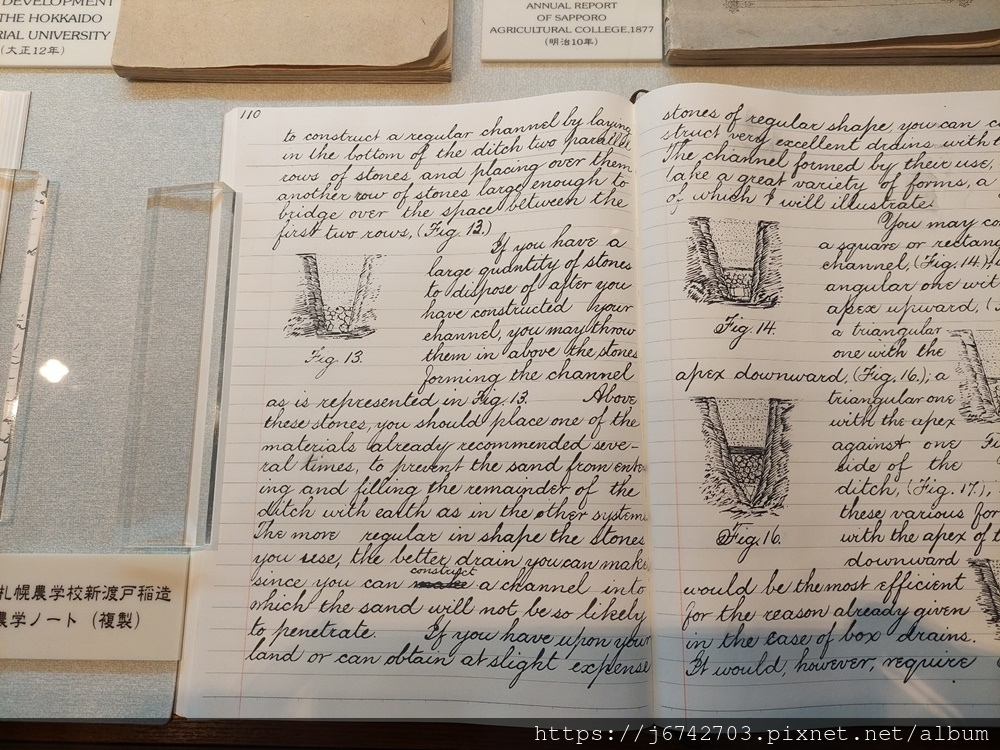 DEVELOPMENT
THE HOKKAIDO
RIAL UNIVERSITY
(大正12年)
ANNUAL REPORT
OF SAPPORO
AGRICULTURAL COLLEGE,1877
(明治10年)
110
to construct a regular channel by laying
in the bottom of the ditch two parallel
rows of stones and placing over them
another row of stones large enough to
bridge over the space between the
first two rows, (Fig. 13.)
If you have a
large quantity of stones
to dispose of after you
have constructed your
channel, you may throw
them in above the stones
forming the channel
Fig. 13.
as is represented in Fig. 13. Above
these stones, you should place one of the
materials already recommended seve-
ral times, to prevent the sand from enter-
ing and filling the remainder of the
ditch with earth as in the other system.
The more regular in shape the stones
you use, the better drain you can make,
construct
since you can make a channel into
which the sand will not be so likely
to penetrate. If you have upon your
land or can obtain at slight expense
stones of regular shape, you can c
struct very excellent drains with t
The channel formed by their use,
take a great variety of forms, a
of which I will illustrate.
You may co
a square or rectan
channel, (Fig. 14.);
angular one wit
apex upward, (
Fig. 14.
a triangular
one with the
apex downward, (Fig. 16.); a
triangular one
with the apex
against one
side of the
ditch, (Fig. 17.),
these various for
Fig. 16.
with the apex of t
downward
would be the most efficient
for the reason already given
in the case of box drains.
It would, however, require
札幌農学校新渡戸稲造
農学ノート (複製)
https://j6742703.pixnet.net/album